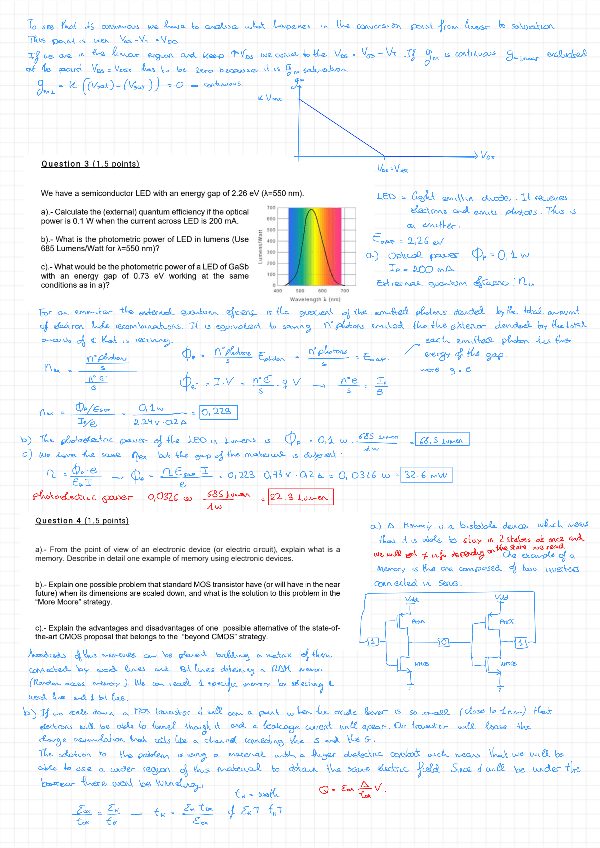 To see that it's continuous we have to analise what happenes in the conversion point from linear to saturation
This point is when
If we are in the linear region and keep ↑VDS we arrive to the VDS = VGS - VT. If gm is continuous gm linear evaluated
at the point has to be zero because it is gm saturation
= 0 → continuous
gm
VDS
VGS-VT
Question 3 (1.5 points)
We have a semiconductor LED with an energy gap of 2.26 eV (λ=550 nm).
a).- Calculate the (external) quantum efficiency if the optical
power is 0.1 W when the current across LED is 200 mA.
b).- What is the photometric power of LED in lumens (Use
685 Lumens/Watt for λ=550 nm)?
c).- What would be the photometric power of a LED of GaSb
with an energy gap of 0.73 eV working at the same
conditions as in a)?
Lumens/Watt
700
600
500
400
300
200
100
0
400 500 600 700
Wavelength λ (nm)
LED = light emittin diode. It receives
electrons and emits photons. This is
an emitter.
= 2,26 eV
a) Optical power Φ0 = 0,1 W
= 200 mA
External quantum eficiency:
For an emmitter the external quantum eficiency is the quocient of the emitted photons devided by the total amount
of electron hole recombinations. It is equivalent to saying nº photons emited the the exterior devided by the total
amount of e that is reciving.
each emitted photon has the
energy of the gap
nº photons
s
0,1 W
= 0,223
b) The photoelectric power of the LED in lumens is Φ0 = 0,1 W · 685 lumen / 1W = 68,5 lumen
c) We have the same but the gap of the material is different:
= 0,223 · 0,73 V · 0,2 A = 0,0326 W = 32.6 mW
photoelectric power 0,0326 W · 685 lumen / 1W = 22.3 Lumen
Question 4 (1.5 points)
a).- From the point of view of an electronic device (or electric circuit), explain what is a
memory. Describe in detail one example of memory using electronic devices.
b).- Explain one possible problem that standard MOS transistor have (or will have in the near
future) when its dimensions are scaled down, and what is the solution to this problem in the
"More Moore" strategy.
c).- Explain the advantages and disadvantages of one possible alternative of the state-of-
the-art CMOS proposal that belongs to the "beyond CMOS" strategy.
a) A Memory is a bistable device which means
that it is able to stay in 2 states at once and
we will get ≠ info depending on the state we read. One example of a
memory is the one composed of two inverters
connected in series.
Vdd
Vdd
PMOS
PMOS
[1]
[0]
[1]
NMOS
NMOS
Hundreds of this memories can be placed building a matrix of them
connected by word lines and Bit lines obtaining a RAM memory
(Random access memory). We can read 1 specific memory by selecting 1
word line and 1 bit line.
b) If we scale down a MOS transistor it will come a point when the oxide layer is so small (close to 1nm) that
electrons will be able to tunnel through it and a leakage current will apear. Our transistor will loose the
charge acumulation that acts like a channel connecting the S and the D.
The solution to the problem is using a material with a higher dielectric constant wich means that we will be
able to use a wider region of this material to obtain the same electric field. Since it will be wider the
barrier there wont be tunneling.
tK = width
Q = εox A/tox V.
εox/tox = εK/tK → tK = εK tox / εox if εK↑ tK↑